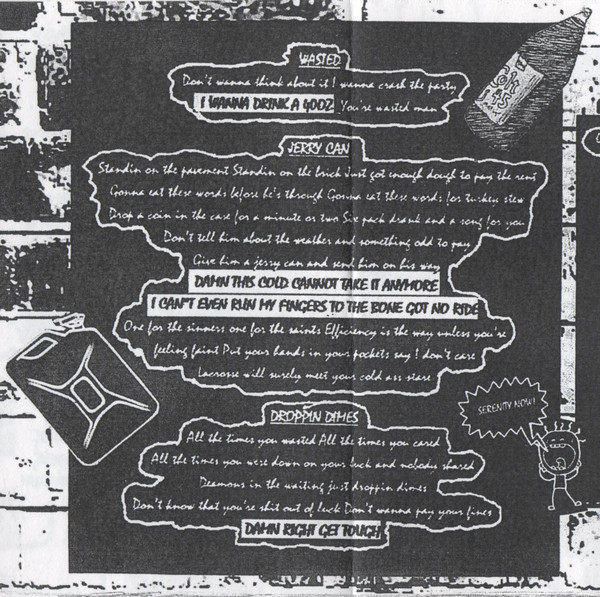 WASTED
Don't wanna think about it I wanna crash the party
I WANNA DRINK A 40OZ You're wasted man
JERRY CAN
Standin on the pavement Standin on the brick Just got enough dough to pay the rent
Gonna eat these words before he's through Gonna eat these words for turkey stew
Drop a coin in the case for a minute or two Six pack drank and a song for you
Don't tell him about the weather and something odd to pay
Give him a jerry can and send him on his way
DAMN THIS COLD CANNOT TAKE IT ANYMORE
I CAN'T EVEN RUN MY FINGERS TO THE BONE GOT NO RIDE
One for the sinners one for the saints Efficiency is the way unless you're
feeling faint Put your hands in your pockets say I don't care
Lacrosse will surely meet your cold ass stare
SERENITY NOW!
DROPPIN DIMES
All the times you wasted All the times you cared
All the times you were down on your luck and nobody shared
Deamons in the waiting just droppin dimes
Don't know that you're shit out of luck Don't wanna pay your fines
DAMN RIGHT GET TOUGH